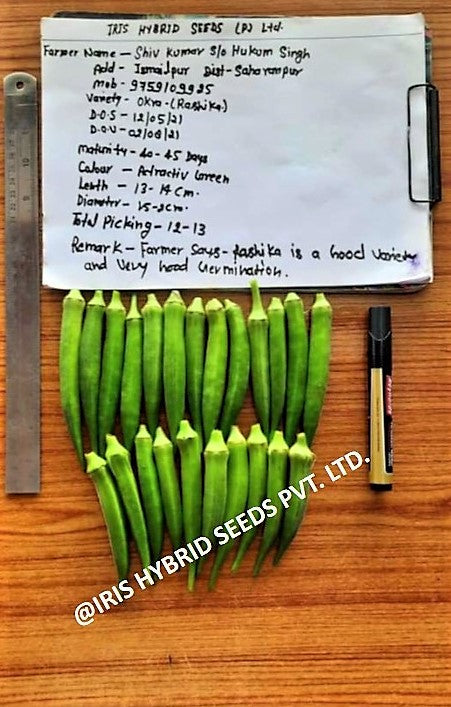 IRIS HYBRID SEEDS (P) Ltd.
Farmer Name - Shiv Kumar S/o Hukum Singh
Add - Ismailpur Dist- Saharanpur
Mob - 9759109985
Variety - Okra - (Rashika)
D.O.S - 12/05/21
D.O.V - 02/08/21
Maturity - 40 - 45 Days
Colour - Attractiv Green
Lenth - 13 - 14 cm.
Diameter - 1.5-2cm.
Total Picking - 12 - 13
Remark - Farmer Says - Rashika is a Good Variety
and Very Good Germination.
@IRIS HYBRID SEEDS PVT. LTD.